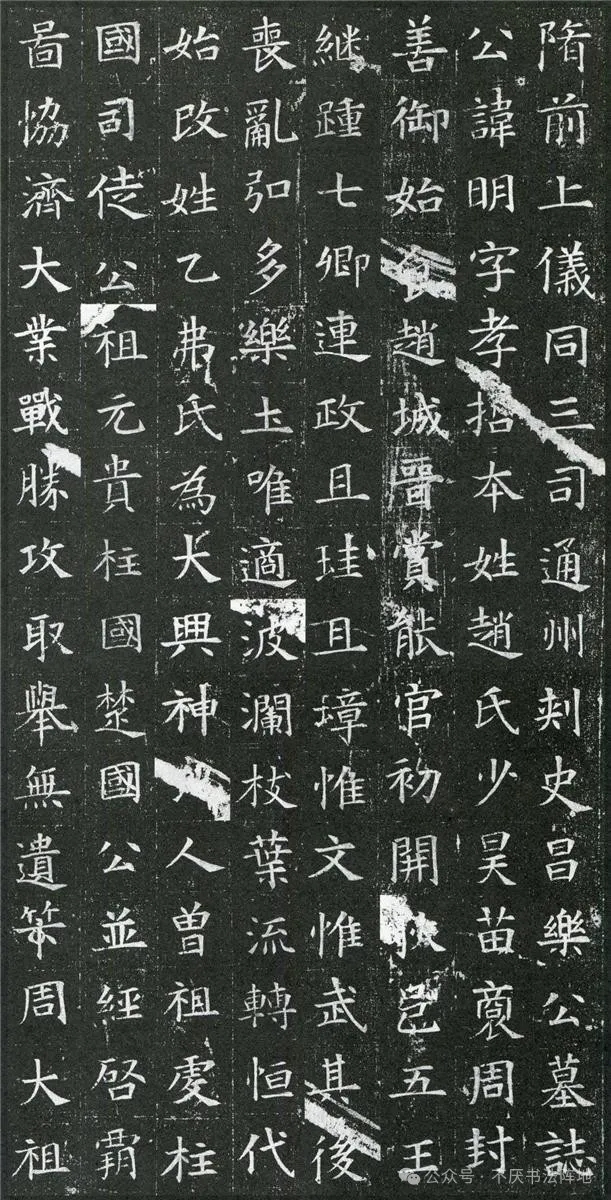 隋前上儀同三司通州刾史昌樂公墓誌
公諱明字孝招本姓趙氏少昊苗裔周封
善御始食趙城晉賞能官初開耿邑五王
継踵七卿連政且珪且璋惟文惟武其後
喪亂弘多樂土唯適波瀾枝葉流轉恒代
始改姓乙弗氏為大興神人曾祖虔柱
國司徒公祖元貴柱國楚國公並經啓霸
啚恊濟大業戰勝攻取舉無遺筞周大祖
公众号 · 不厌书法阵地